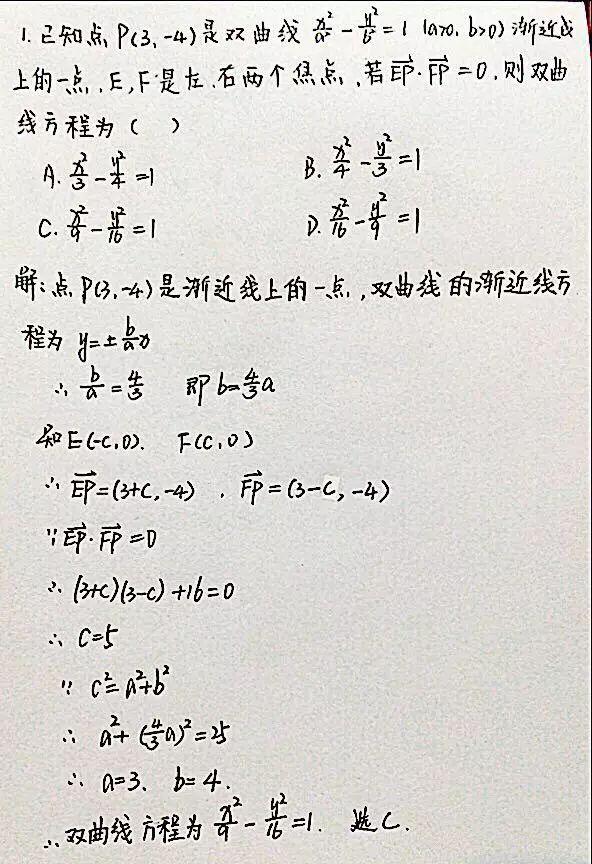 1. 已知点 P(3,-4)是双曲线 x²/a² - y²/b² = 1 (a>0, b>0) 渐近线
上的一点, E, F是左、右两个焦点, 若EP·FP=0, 则双曲
线方程为( )
A. x²/3 - y²/4 = 1 B. x²/4 - y²/3 = 1
C. x²/9 - y²/16 = 1 D. x²/16 - y²/9 = 1
解:点 P(3,-4)是渐近线上的一点, 双曲线的渐近线方
程为 y=±b/a x
∴ b/a = 4/3 即 b=4/3 a
知 E(-c,0)、 F(c,0)
∴ EP=(3+c,-4) , FP=(3-c,-4)
∵ EP·FP=0
∴ (3+c)(3-c)+16=0
∴ c=5
∵ c²=a²+b²
∴ a²+(4/3 a)²=25
∴ a=3、 b=4.
∴双曲线方程为 x²/9 - y²/16 = 1. 选C.